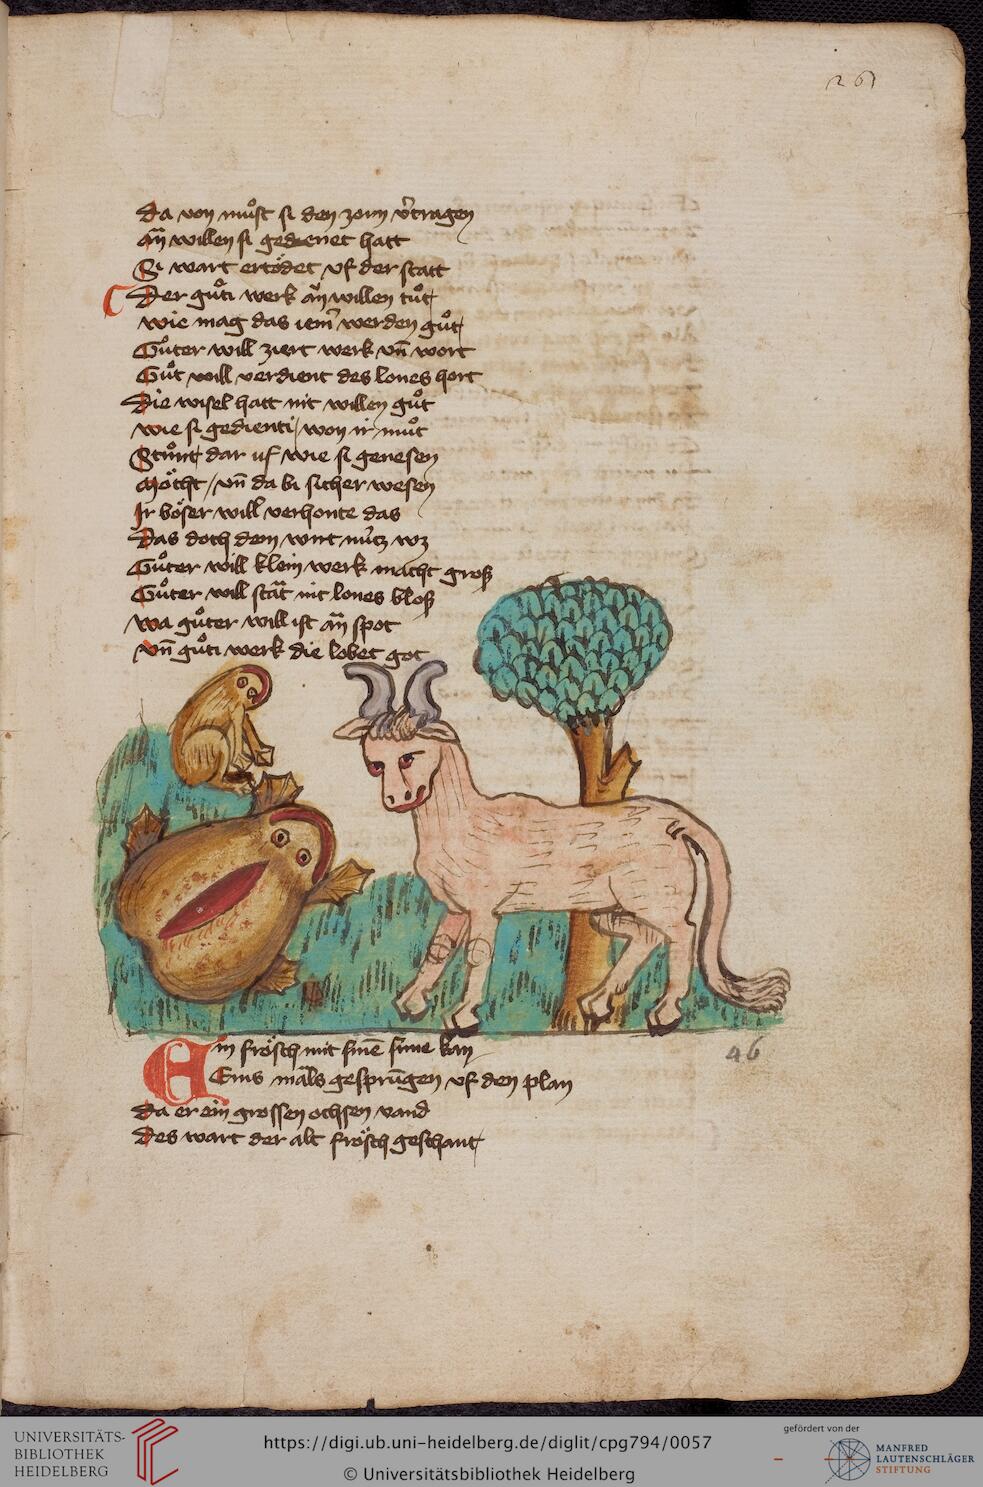 261
da von muͦst si den zorn v̾tragen
An̄ willen si gedienet hatt
Si wart ertoͤdet vf der statt
Der guͦti werk an̄ willen tuͦt
wie mag das iem̾ werden guͦt
Guͦter will ziert werk vn̄ wort
Guͦt will verdient des lones hort
Die wisel hatt nit willen guͦt
wie si gedienti / won ir muͦt
Stuͦnt dar uf wie si genesen
Moͤcht / vn̄ da bi sicher wesen
Ir boͤser will verhonte das
Das doch dem wirt nu̍tz wz
Guͦter will klein werk macht groß
Guͦter will staͤt nit lones bloß
wa guͦter will ist an̄ spot
vn̄ guͦti werk die lobet got
Ein froͤsch mit sinē sune kan
Eins mals gesprūgen vf den plan
da er ein grossen ochsen vand
Des wart der alt froͤsch geschant
46
UNIVERSITÄTS-
BIBLIOTHEK
HEIDELBERG
https://digi.ub.uni-heidelberg.de/diglit/cpg794/0057
© Universitätsbibliothek Heidelberg
gefördert von der
MANFRED
LAUTENSCHLÄGER
STIFTUNG